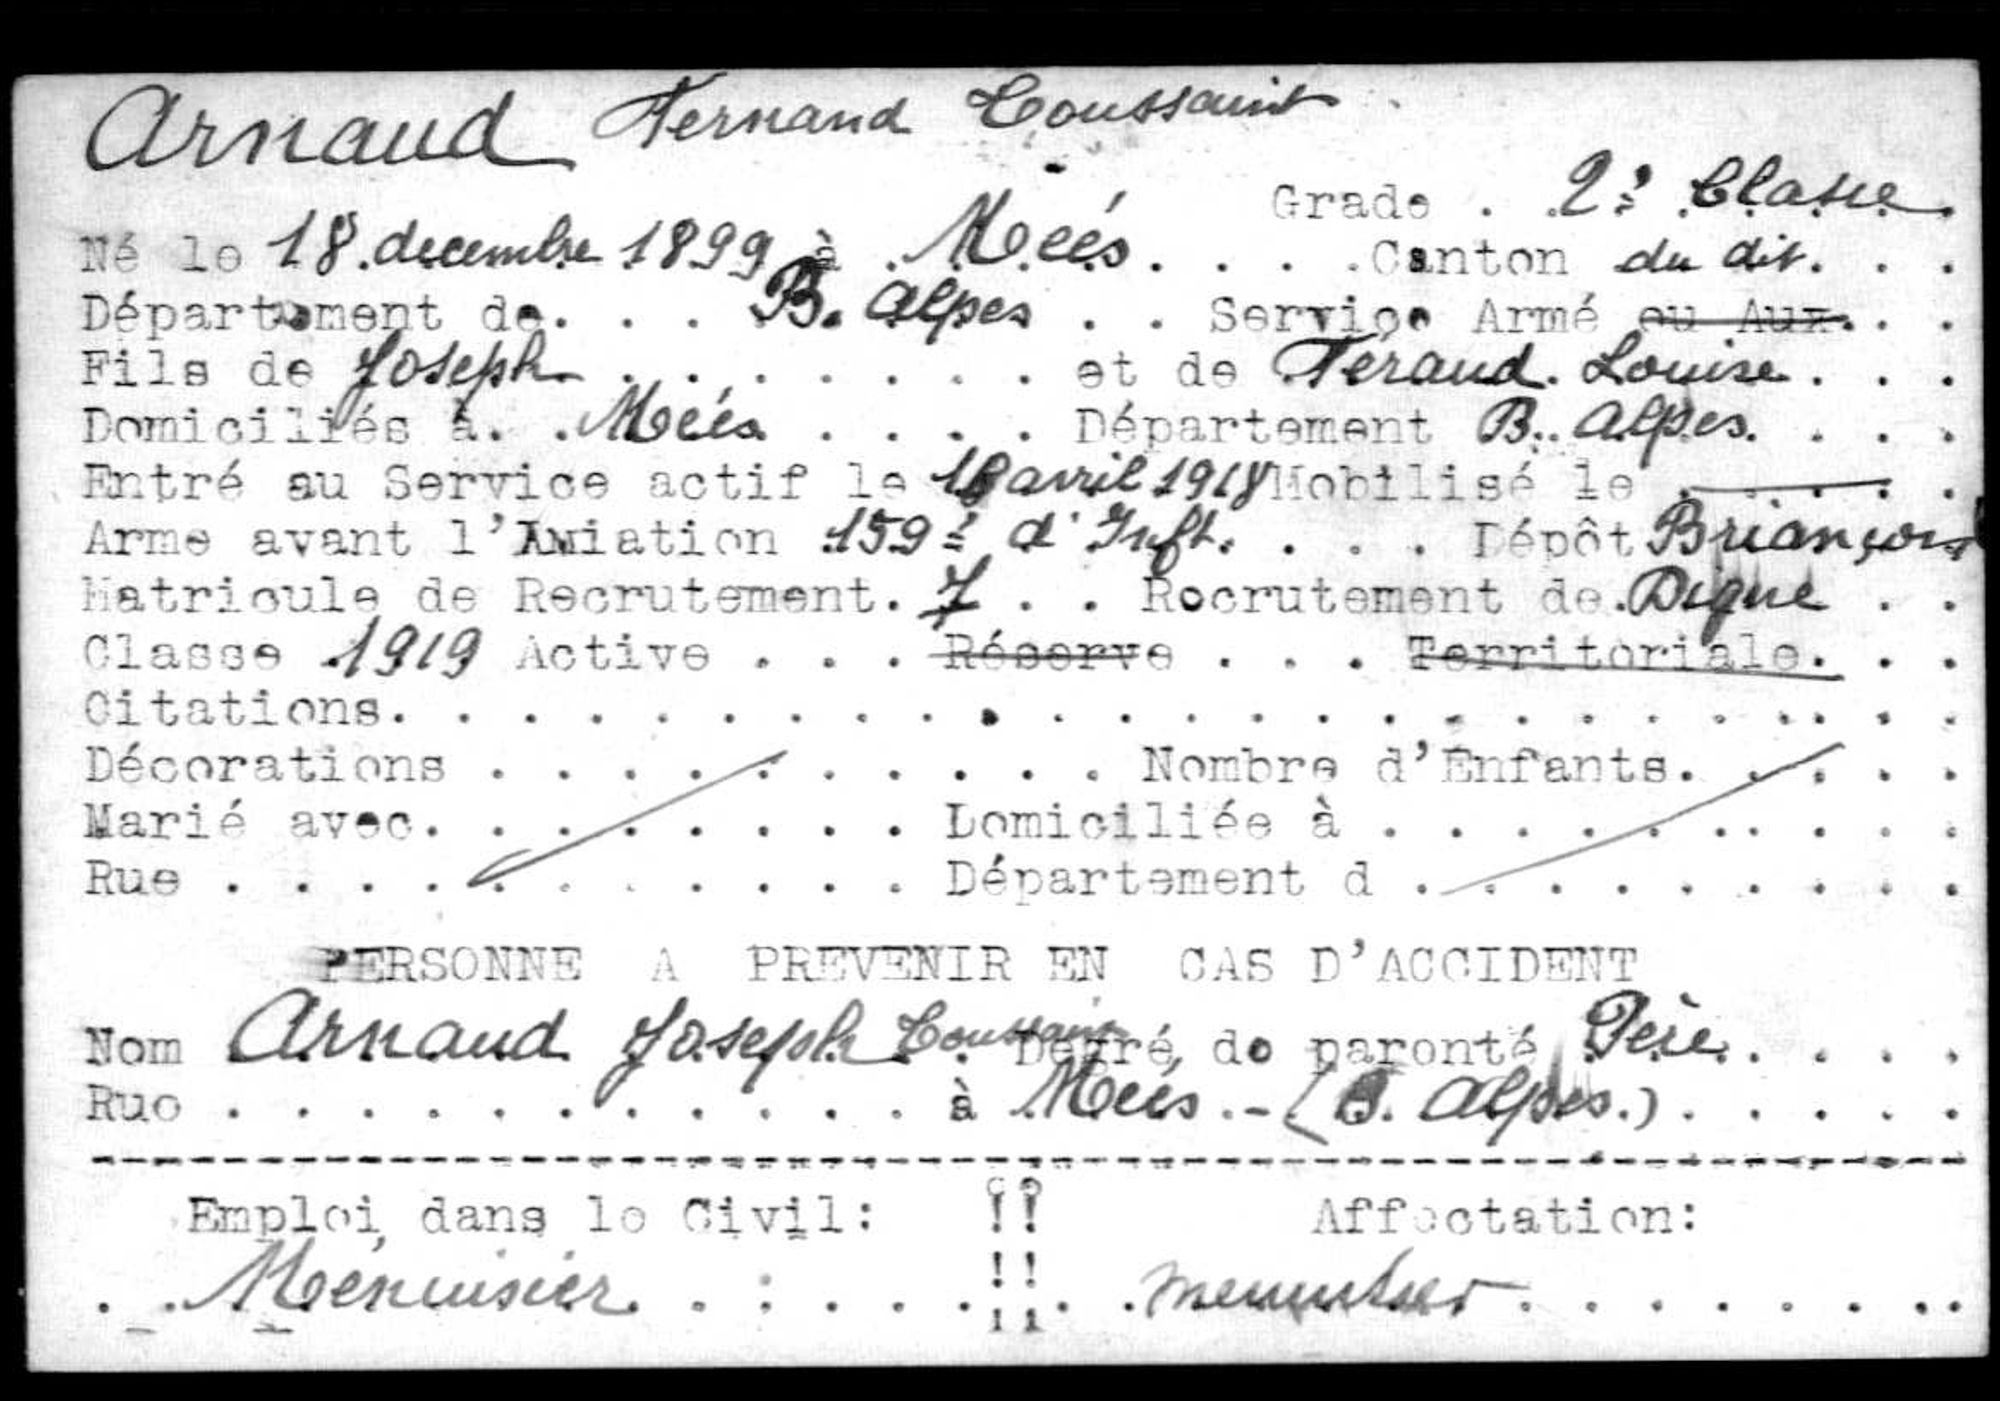 Arnaud Fernand Toussaint
Grade . 2e Classe.
Né le 18 decembre 1899 à Méés . . . . Canton du dit. . .
Département de. . . B. Alpes . . Service Armé ou Aux. . .
Fils de Joseph . . . . . . . et de Féraud. Louise . . .
Domiciliés à. . Méés . . . . Département B. Alpes. . . .
Entré au Service actif le avril 1918 Mobilisé le . . . . .
Arme avant l'Aviation 159e d'Inft. . . . Dépôt Briançon
Matricule de Recrutement. 7 . . Recrutement de. Digne . .
Classe 1919 Active . . . Réserve . . . Territoriale. . .
Citations. . . . . . . . . . . . . . . . . . . . . . .
Décorations . . . . . . . . . . Nombre d'Enfants. . . . .
Marié avec. . . . . . . . Domiciliée à . . . . . . . . .
Rue . . . . . . . . . . . Département d . . . . . . . . .
PERSONNE A PREVENIR EN CAS D'ACCIDENT
Nom Arnaud Joseph Toussaint Degré de parenté Père . . . .
Rue . . . . . . . . . . . à Méés . - (B. Alpes.) . . . . .
Emploi dans le Civil: !! Affectation:
. . Menuisier. . . . . . !! . . menuisier . . . . . . . .